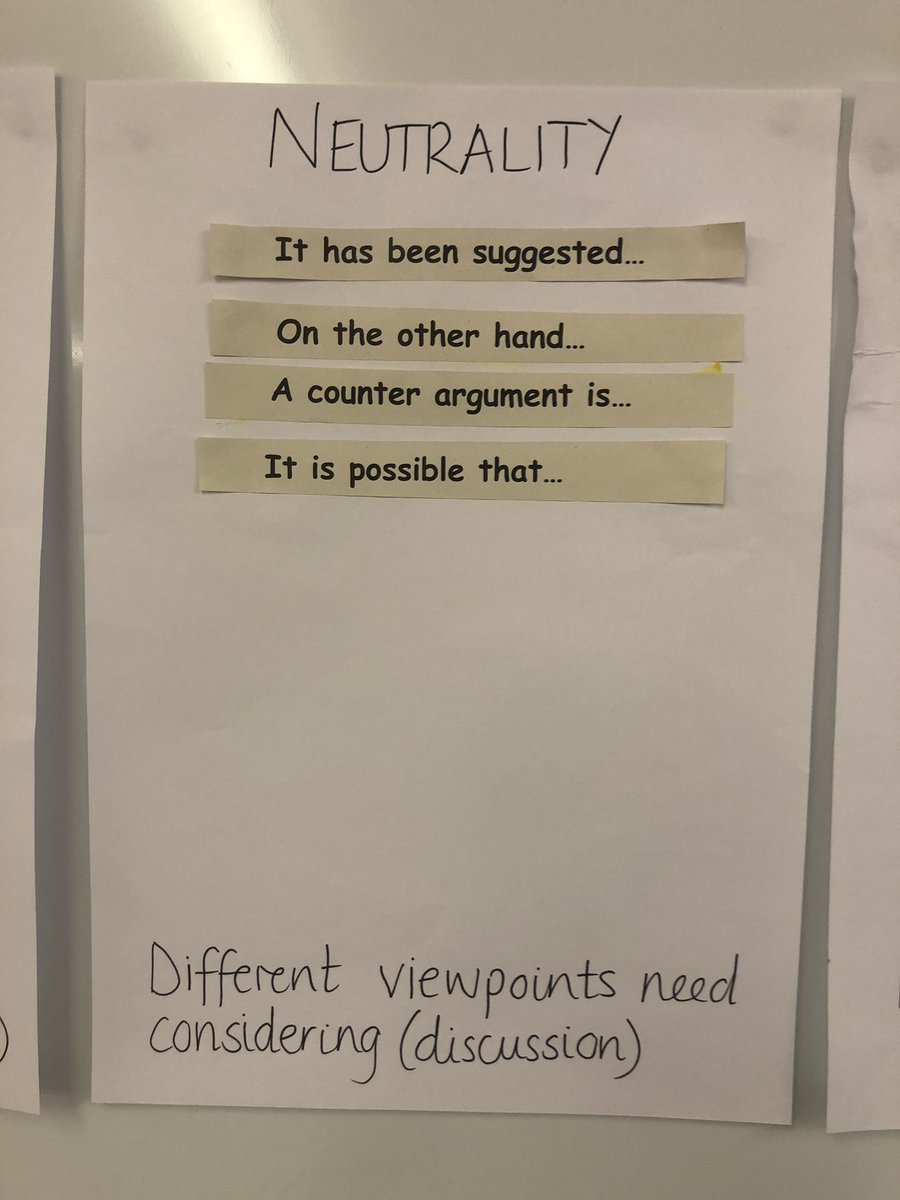 NEUTRALITY
It has been suggested...
On the other hand...
A counter argument is...
It is possible that...
Different viewpoints need
considering (discussion)
)